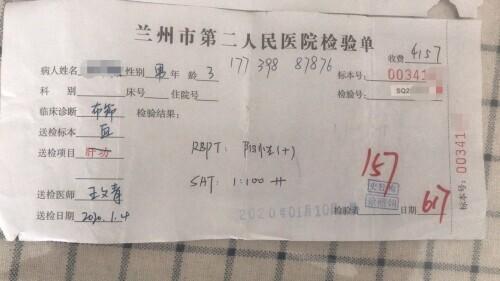 兰州市第二人民医院检验单
收费 4157
病人姓名 性别 男 年龄 3 177 398 87876 标本号: 00341
科别 床号 住院号 检验号: SQ2
临床诊断 布病 检验结果:
送检标本 血
送检项目 肝功 RBPT: 阳性(+)
SAT: 1:100 ++
157
送检医师
送检日期 2020.1.4 2020年01月10日 检验者 617
标本号: 00341